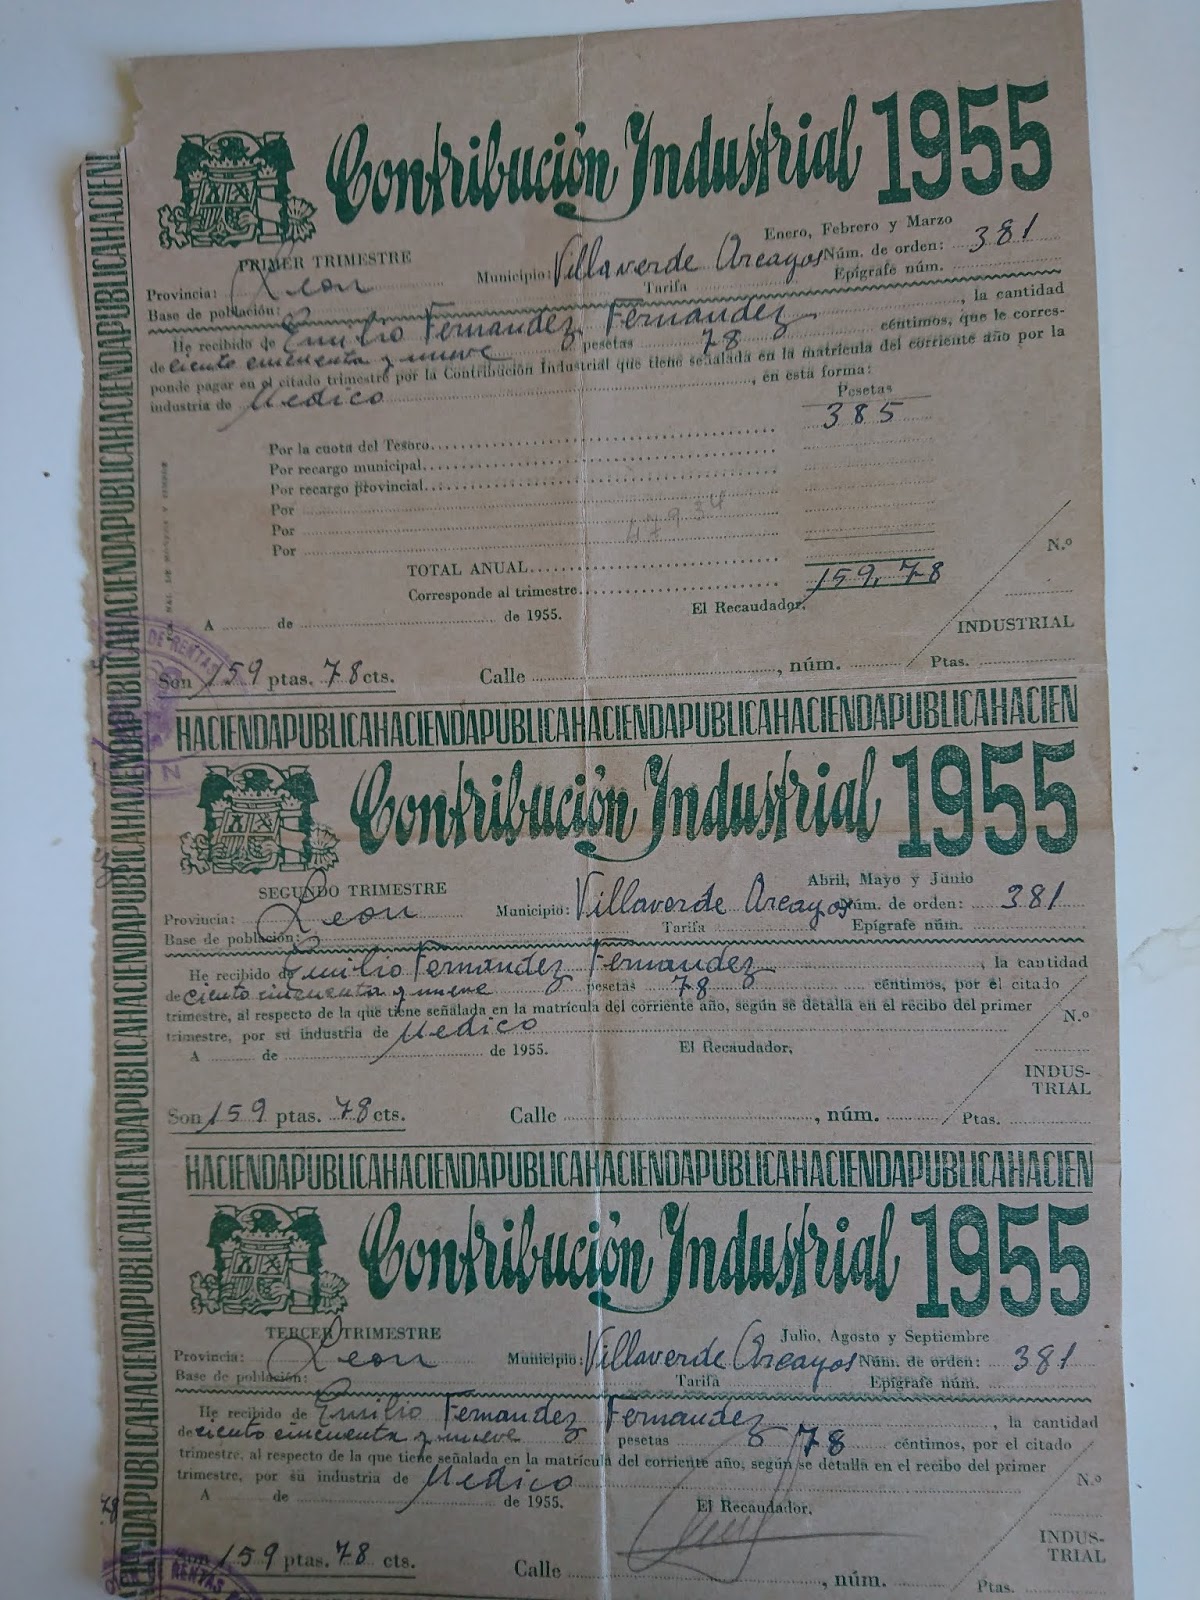 Contribución Industrial 1955
Enero, Febrero y Marzo
PRIMER TRIMESTRE
Provincia: Leon Municipio: Villaverde Arcayos Núm. de orden: 381
Base de población: Tarifa Epígrafe núm.
He recibido de Emilio Fernandez Fernandez, la cantidad
de ciento cincuenta y nueve pesetas 78 céntimos, que le corres-
ponde pagar en el citado trimestre por la Contribución Industrial que tiene señalada en la matrícula del corriente año por la
industria de Medico, en esta forma:
Pesetas
385
Por la cuota del Tesoro
Por recargo municipal
Por recargo provincial
Por
Por 479 34
Por
TOTAL ANUAL
Corresponde al trimestre 159,78
N.º
A de de 1955. El Recaudador,
INDUSTRIAL
Son 159 ptas. 78 cts. Calle , núm. Ptas.
HACIENDAPUBLICAHACIENDAPUBLICAHACIENDAPUBLICAHACIENDAPUBLICAHACIEN
Contribución Industrial 1955
Abril, Mayo y Junio
SEGUNDO TRIMESTRE
Provincia: Leon Municipio: Villaverde Arcayos Núm. de orden: 381
Base de población: Tarifa Epígrafe núm.
He recibido de Emilio Fernandez Fernandez, la cantidad
de ciento cincuenta y nueve pesetas 78 céntimos, por el citado
trimestre, al respecto de la que tiene señalada en la matrícula del corriente año, según se detalla en el recibo del primer
trimestre, por su industria de Medico
N.º
A de de 1955. El Recaudador,
INDUS-
TRIAL
Son 159 ptas. 78 cts. Calle , núm. Ptas.
HACIENDAPUBLICAHACIENDAPUBLICAHACIENDAPUBLICAHACIENDAPUBLICAHACIEN
Contribución Industrial 1955
Julio, Agosto y Septiembre
TERCER TRIMESTRE
Provincia: Leon Municipio: Villaverde Arcayos Núm. de orden: 381
Base de población: Tarifa Epígrafe núm.
He recibido de Emilio Fernandez Fernandez, la cantidad
de ciento cincuenta y nueve pesetas 78 céntimos, por el citado
trimestre, al respecto de la que tiene señalada en la matrícula del corriente año, según se detalla en el recibo del primer
trimestre, por su industria de Medico
N.º
A de de 1955. El Recaudador,
INDUS-
TRIAL
Son 159 ptas. 78 cts. Calle , núm. Ptas.
DE RENTAS
DE RENTAS